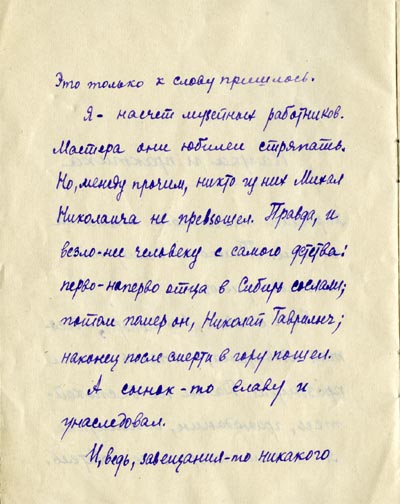 Это только к слову пришлось.
Я - насчет музейных работников.
Мастера они юбилеи стряпать.
Но, между прочим, никто из них Михал
Николаича не превзошел. Правда, и
везло-же человеку с самого детства:
перво-наперво отца в Сибирь сослали;
потом помер он, Николай Гаврилыч;
наконец после смерти в гору пошел.
А сынок-то славу и
унаследовал.
И, ведь, завещания-то никакого